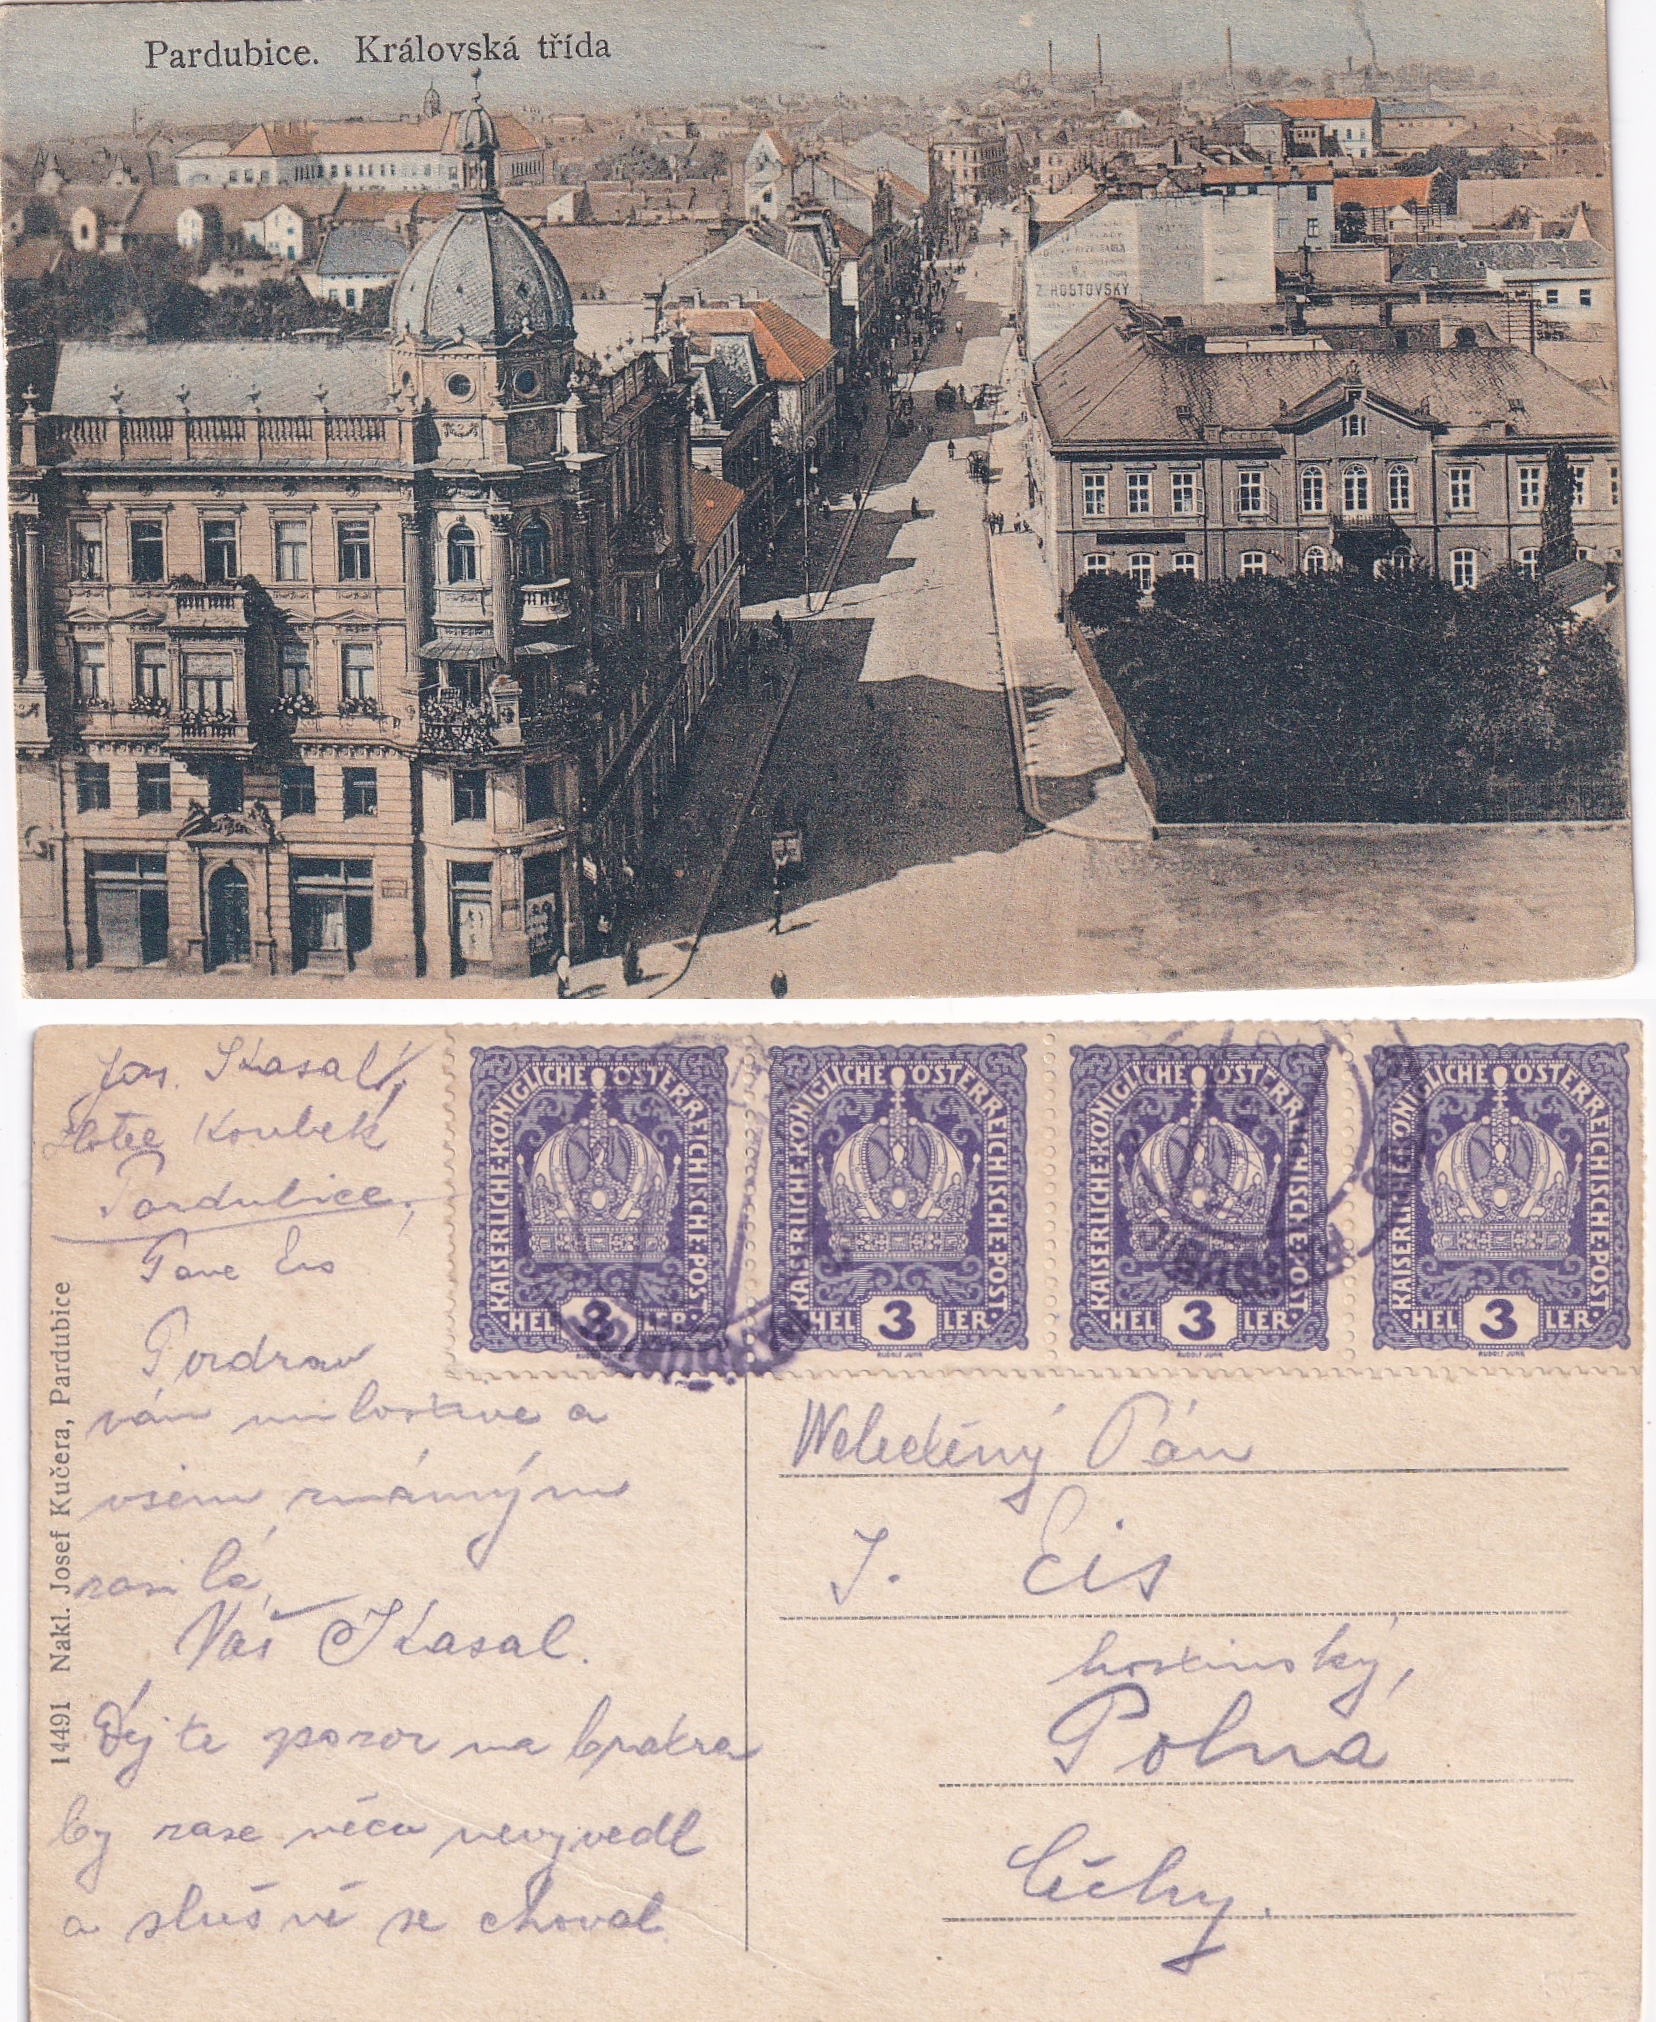 Pardubice. Královská třída
Z. ROSTOVSKÝ
Jos. Skasal,
Hotel Koubek
Pardubice,
Pane Eis
Pozdrav
vám milostive a
všem známým
zasilá
Váš Skasal.
Dejte pozor na bratra
by zase něco nevyvedl
a slušně se choval.
14491 Nakl. Josef Kučera, Pardubice
KAISERLICHE·KÖNIGLICHE ÖSTERREICHISCHE·POST·
·HEL 3 LER·
RUDOLF JUNK
KAISERLICHE·KÖNIGLICHE ÖSTERREICHISCHE·POST·
·HEL 3 LER·
RUDOLF JUNK
KAISERLICHE·KÖNIGLICHE ÖSTERREICHISCHE·POST·
·HEL 3 LER·
RUDOLF JUNK
KAISERLICHE·KÖNIGLICHE ÖSTERREICHISCHE·POST·
·HEL 3 LER·
RUDOLF JUNK
Velectěný Pán
J. Eis
hostinský,
Polná
Čéchy.